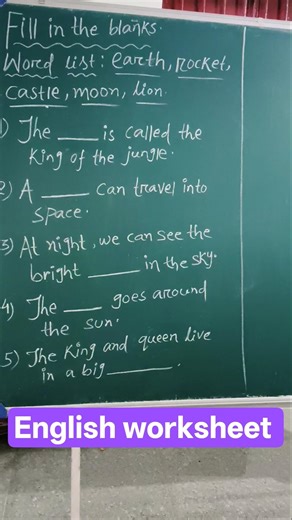 Fill in the blanks.
Word list: earth, rocket,
castle, moon, lion.
1) The ___ is called the
King of the jungle.
2) A ___ can travel into
space.
3) At night, we can see the
bright ___ in the sky.
4) The ___ goes around
the sun.
5) The King and queen live
in a big ___.
English worksheet